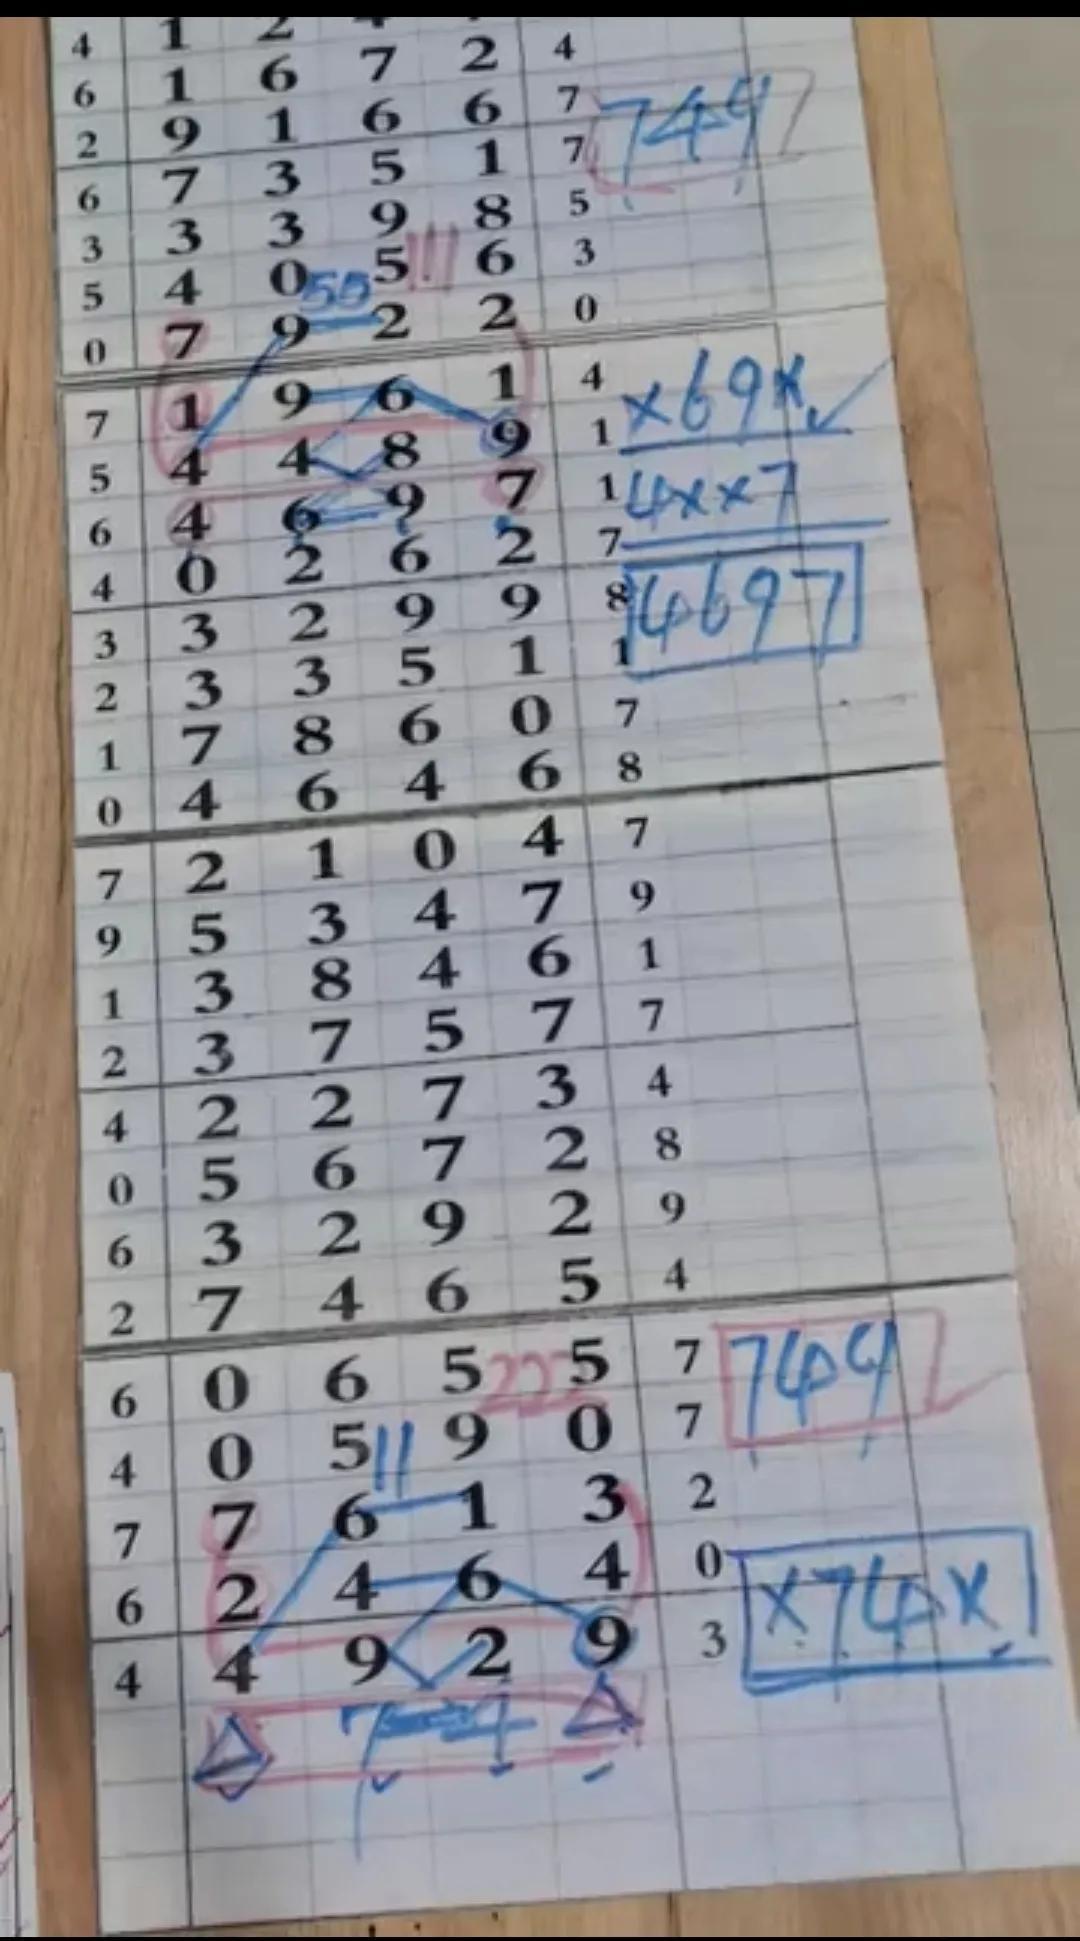 4 1 2 4
6 1 6 7 2 4
2 9 1 6 6 7 7449
6 7 3 5 1 7
3 3 3 9 8 5
5 4 0 5 !!! 6 3
55
0 7 9 2 2 0
7 1 9 6 1 4 x69x
5 4 4 8 9 1
6 4 6 9 7 1 4xx7
4 0 2 6 2 7
3 3 2 9 9 8 4697
2 3 3 5 1 1
1 7 8 6 0 7
0 4 6 4 6 8
7 2 1 0 4 7
9 5 3 4 7 9
1 3 8 4 6 1
2 3 7 5 7 7
4 2 2 7 3 4
0 5 6 7 2 8
6 3 2 9 2 9
2 7 4 6 5 4
6 0 6 5 222 5 7 749
4 0 5 11 9 0 7
7 7 6 1 3 2
6 2 4 6 4 0 x74x
4 4 9 2 9 3
7 4